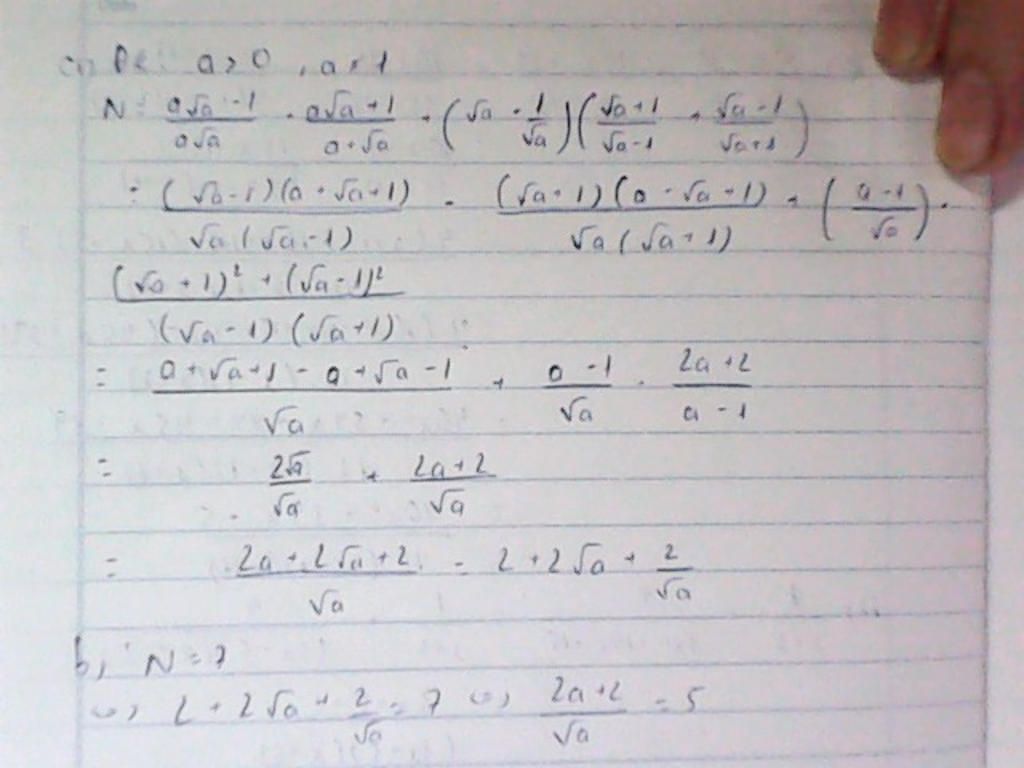 a, ĐK: a > 0, a ≠ 1
N = (a√a - 1)/(a√a) - (a√a + 1)/(a + √a) + (√a - 1/√a)((√a + 1)/(√a - 1) + (√a - 1)/(√a + 1))
= ((√a - 1)(a + √a + 1))/(√a(√a - 1)) - ((√a + 1)(a - √a + 1))/(√a(√a + 1)) + ((a - 1)/√a) .
((√a + 1)² + (√a - 1)²)/((√a - 1)(√a + 1))
= (a + √a + 1 - a + √a - 1)/√a + (a - 1)/√a . (2a + 2)/(a - 1)
= 2√a/√a + (2a + 2)/√a
= (2a + 2√a + 2)/√a = 2 + 2√a + 2/√a
b, N = 7
<=> 2 + 2√a + 2/√a = 7 <=> (2a + 2)/√a = 5